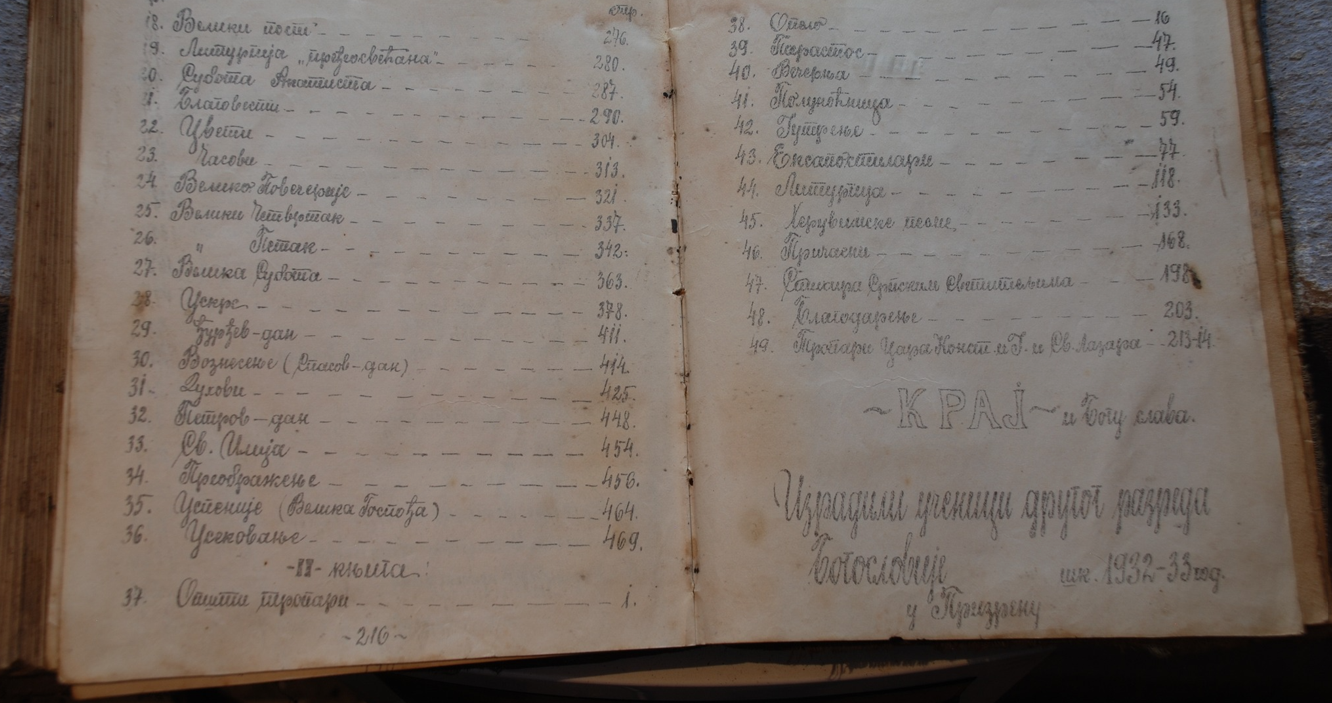 стр.
18. Велики пости 276.
19. Литургија „пређеосвећана“ 280.
20. Субота Акатиста 287.
21. Благовести 290.
22. Цвети 304.
23. Часови 313.
24. Велико Повечерије 321.
25. Велики Четвртак 337.
26. „ Петак 342.
27. Велика Субота 363.
28. Ускрс 378.
29. Ђурђев-дан 411.
30. Вознесење (Спасов-дан) 414.
31. Духови 425.
32. Петров-дан 448.
33. Св. Илија 454.
34. Преображење 456.
35. Успеније (Велика Госпођа) 464.
36. Усековање 469.
-II- књига.
37. Општи тропари 1.
~216~
38. Опело 16
39. Парастос 47.
40. Вечерња 49.
41. Полуноћница 54.
42. Јутрење 59.
43. Ексапостилари 77
44. Литургија 118.
45. Херувимске песме 133.
46. Причасни 168.
47. Стихира Српским Светитељима 198
48. Благодарење 203.
49. Тропари Цара Конст. и Ј. и Св. Лазара 213-14.
~КРАЈ~ и Богу слава.
Израдили ученици другог разреда
Богословије шк. 1932-33 год.
у Призрену